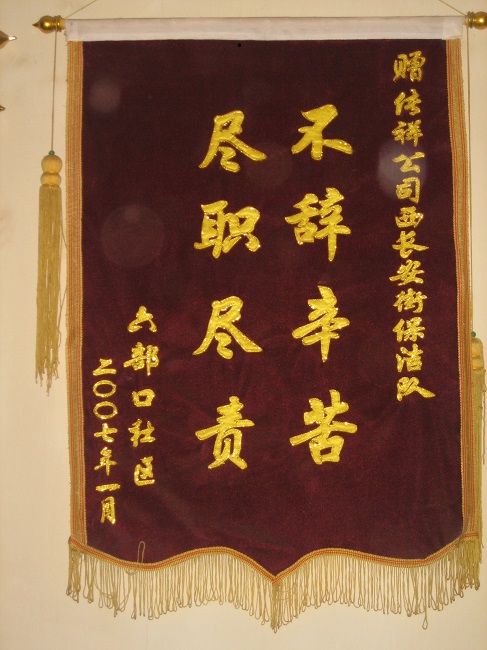 赠传祥公司西长安街保洁队
不辞辛苦
尽职尽责
六部口社区
二〇〇七年一月